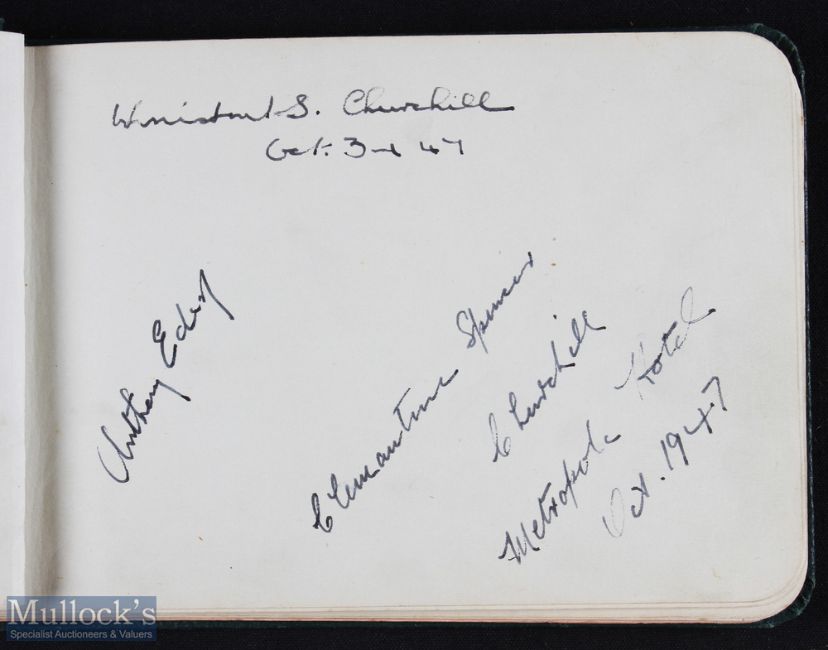 Winston S. Churchill
Oct. 3rd 47
Anthony Eden
Clementine Spencer
Churchill
Metropole Hotel
Oct. 1947
Mullock's
Specialist Auctioneers & Valuers